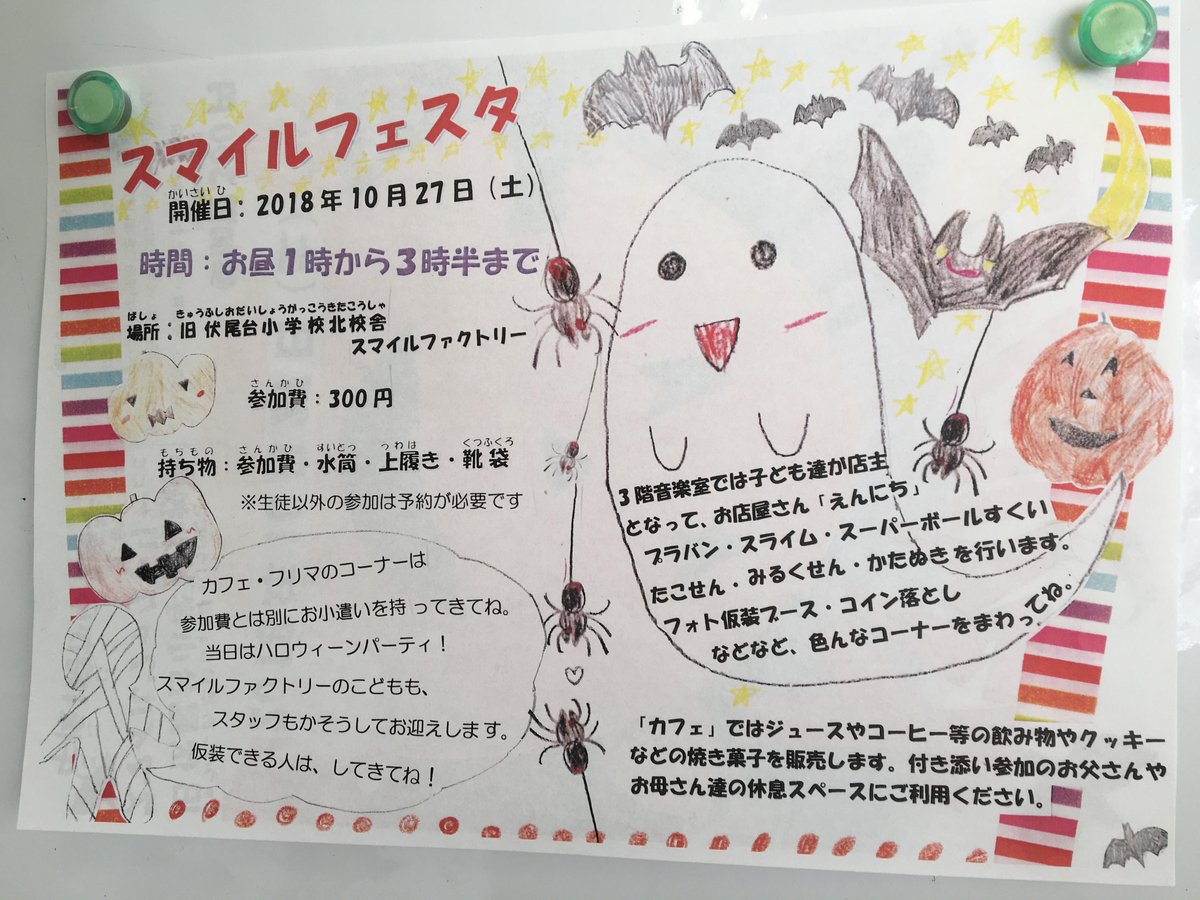 スマイルフェスタ
かいさい ひ
開催日：2018年10月27日（土）
時間：お昼1時から3時半まで
ばしょ きゅうふしおだいしょうがっこうきたこうしゃ
場所：旧伏尾台小学校北校舎
スマイルファクトリー
さんかひ
参加費：300円
もちもの さんかひ すいとう うわば くつふくろ
持ち物：参加費・水筒・上履き・靴袋
※生徒以外の参加は予約が必要です
カフェ・フリマのコーナーは
参加費とは別にお小遣いを持ってきてね。
当日はハロウィーンパーティ！
スマイルファクトリーのこどもも、
スタッフもかそうしてお迎えします。
仮装できる人は、してきてね！
3階音楽室では子ども達が店主
となって、お店屋さん「えんにち」
プラバン・スライム・スーパーボールすくい
たこせん・みるくせん・かたぬきを行います。
フォト仮装ブース・コイン落とし
などなど、色んなコーナーをまわってね。
「カフェ」ではジュースやコーヒー等の飲み物やクッキー
などの焼き菓子を販売します。付き添い参加のお父さんや
お母さん達の休息スペースにご利用ください。